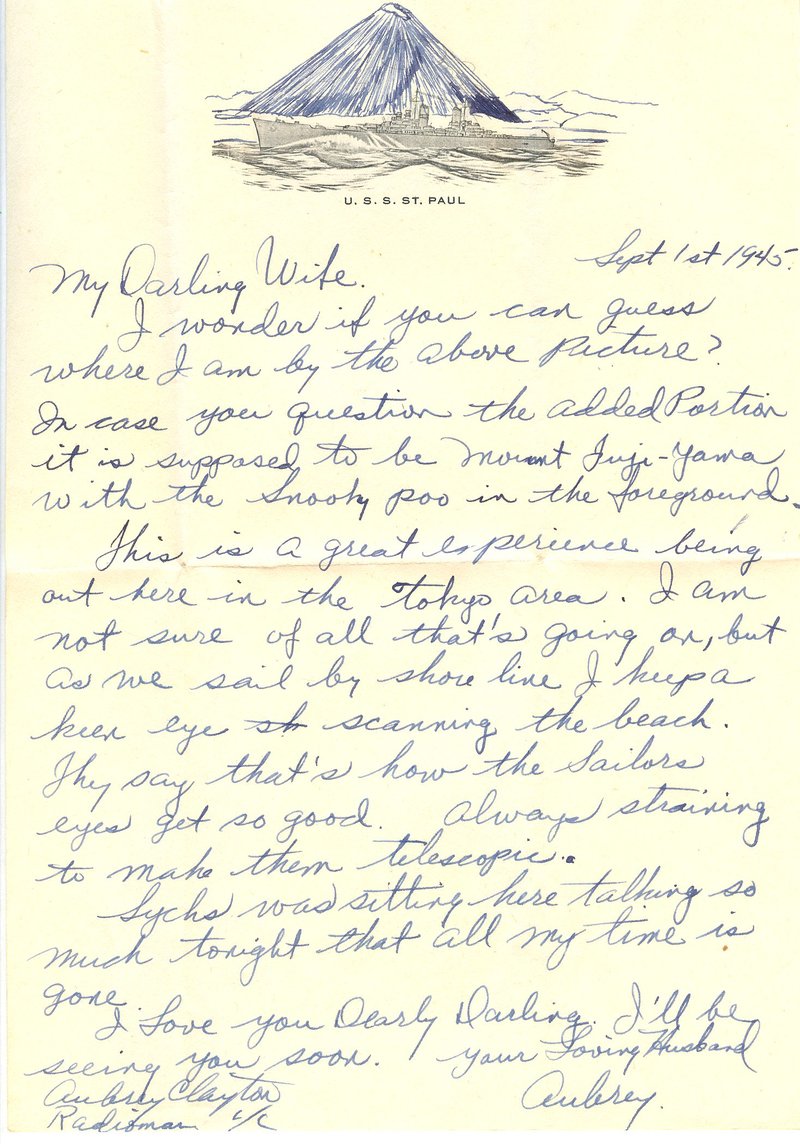 U. S. S. ST. PAUL
Sept 1st 1945.
My Darling Wife.
I wonder if you can guess
where I am by the above Picture?
In case you question the added Portion
it is supposed to be Mount Fuji-Yama
with the Snooky poo in the foreground.
This is a great experience being
out here in the Tokyo area. I am
not sure of all that's going on, but
as we sail by shore line I keep a
keen eye sh scanning the beach.
Thy say that's how the Sailors
eyes get so good. Always straining
to make them telescopic.
was sitting here talking so
much tonight that all my time is
gone.
I Love you Dearly Darling. I'll be
seeing you soon. Your Loving Husband
Aubrey Clayton Aubrey.
Radioman 1/C